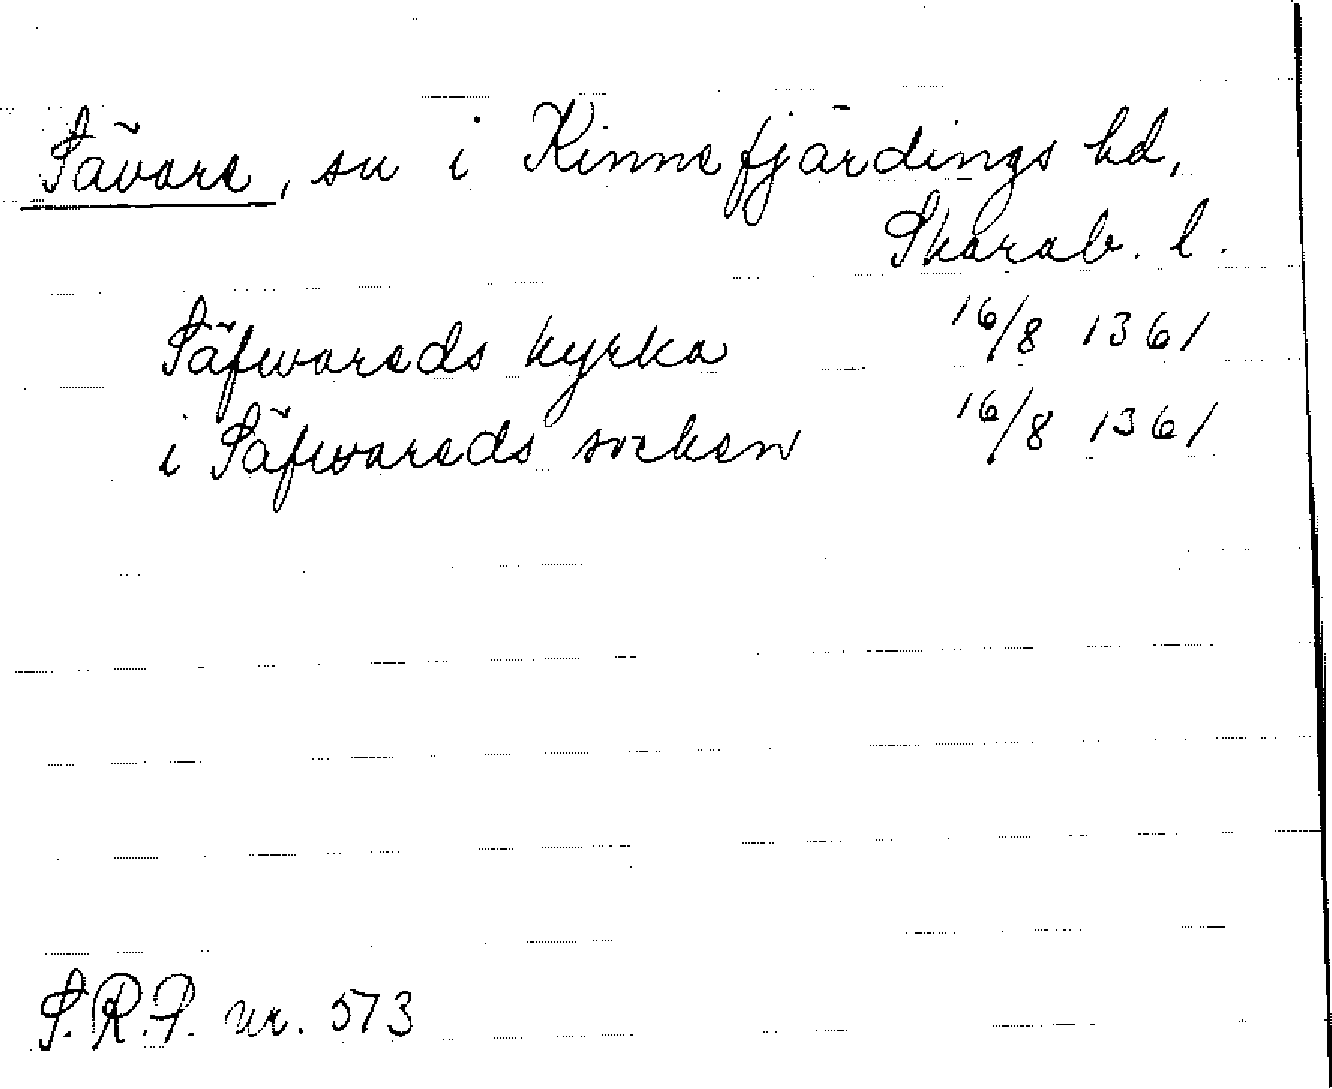 Sävare, sn i Kinnefjärdings hd,
Skarab. l.
Säfwareds kyrka 16/8 1361
i Säfwareds socken 16/8 1361
S.R.P. nr. 573